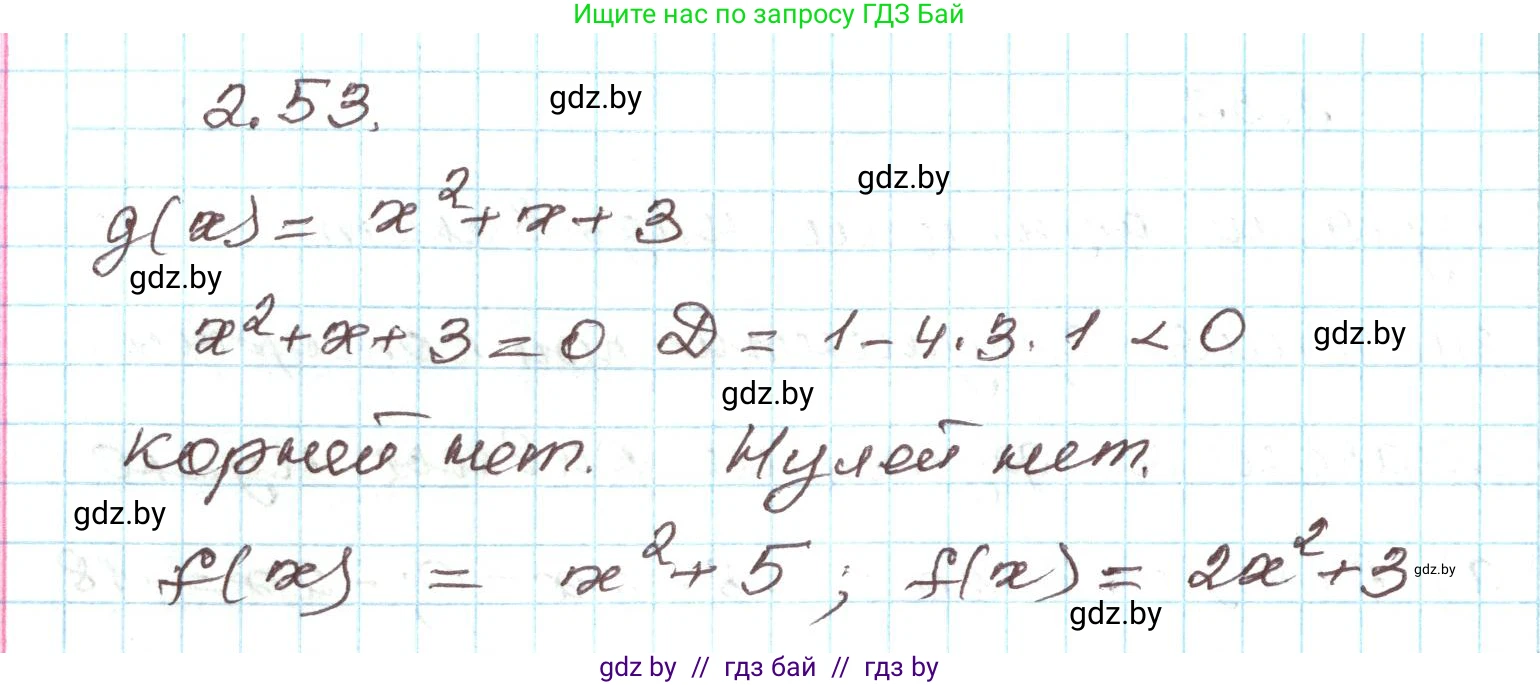 Ищите нас по запросу ГДЗ Бай
2.53. gdz.by
gdz.by
g(x) = x² + x + 3
gdz.by
x² + x + 3 = 0 D = 1 - 4 · 3 · 1 < 0 gdz.by
gdz.by
корней нет. Нулей нет.
gdz.by
f(x) = x² + 5 ; f(x) = 2x² + 3 gdz.by
gdz.by
gdz by // гдз бай // гдз by